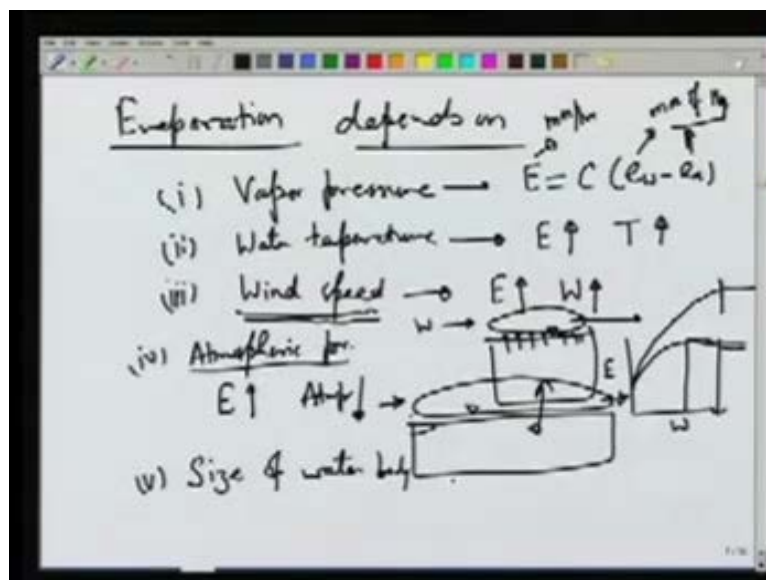 Evaporation depends on
mm of Hg
(i) Vapor pressure → E = C (ew - ea)
(ii) Water temperature → E ↑ T ↑
(iii) Wind speed → E ↑ W ↑
W →
(iv) Atmospheric pr.
E ↑ At.pr ↓ →
E
W
(v) Size of water body